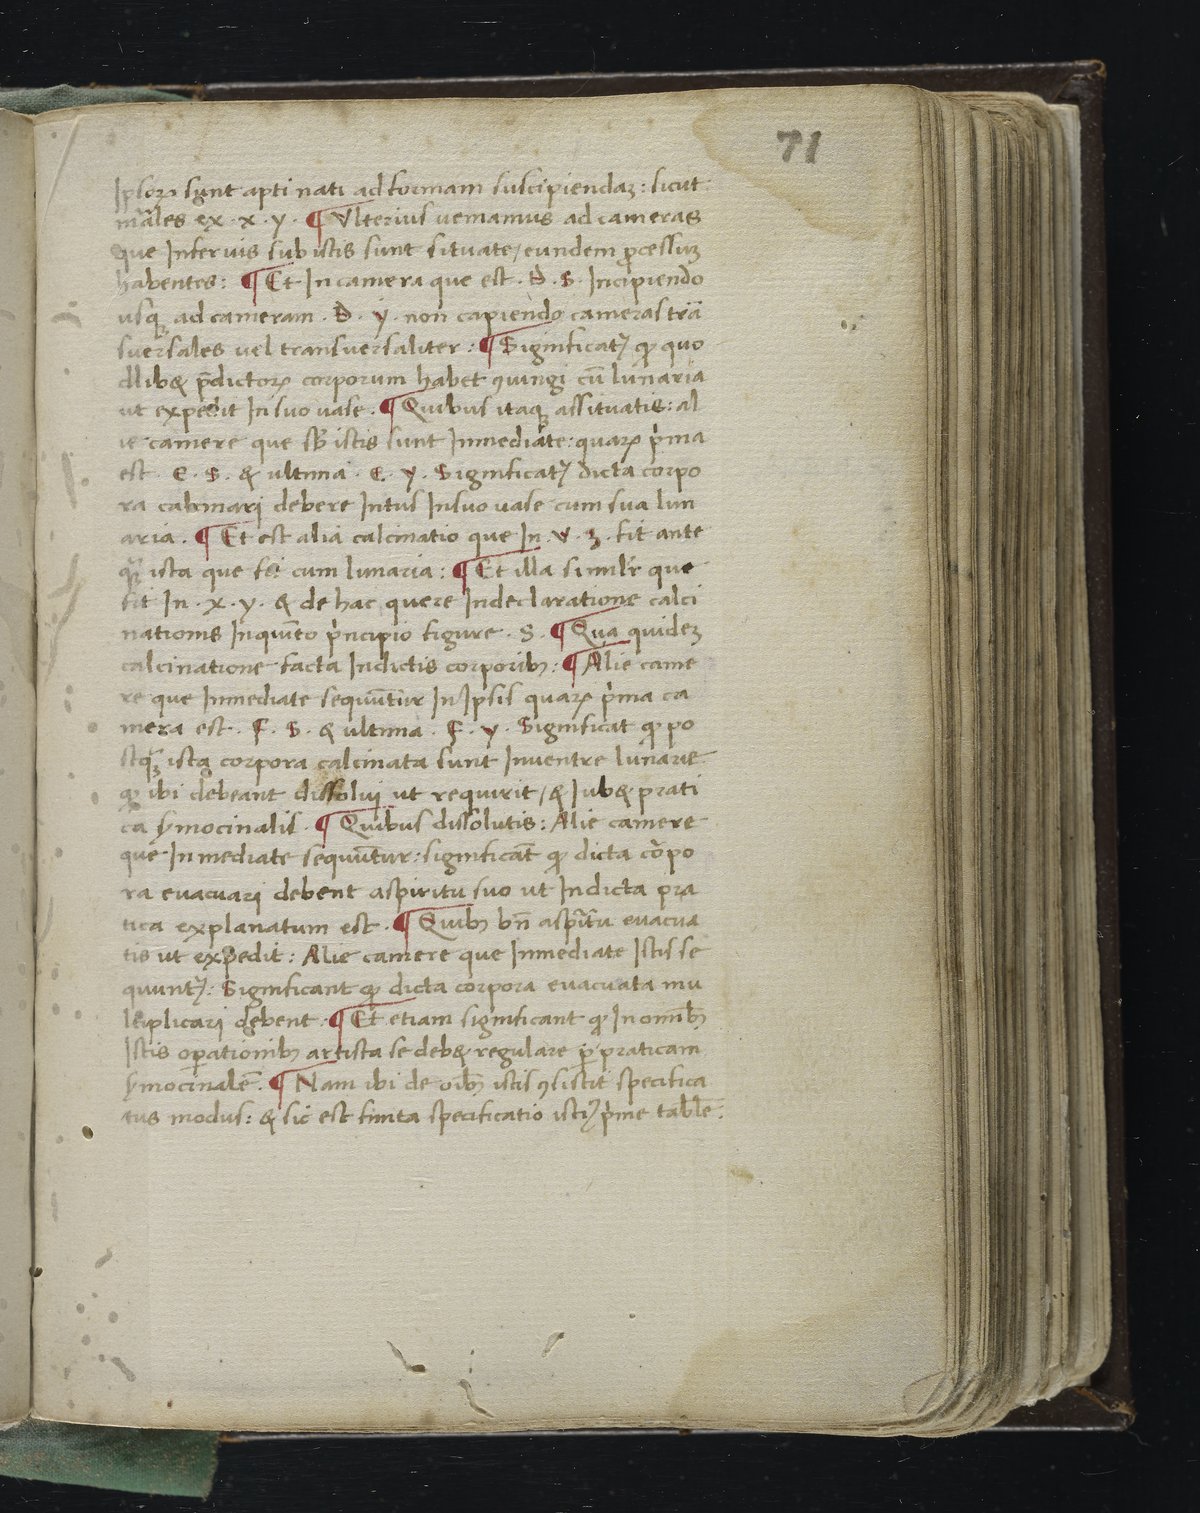 71
Ipsoꝝ sunt apti nati ad formam suscipiendaꝫ: sicut
mr̄ales ex · x · y · ¶ Vlterius veniamus ad cameras
que Inferius sub istis sunt situate / eundem ꝓcessuꝫ
habentes: ¶ Et In camera que est · D · S · Incipiendo
usqꝫ ad cameram · D · y · non capiendo cameras trā
suersales uel transuersaliter: ¶ Significat᷑ ꝙ quo
dlibꝫ p̄dictoꝝ corporum habet ꝯiungi cū lunaria
ut expedit In suo vase. ¶ Quibus itaqꝫ assituatis: al
ie camere que sƀ istis sunt Inmediate: quaꝝ p̓ma
est · E · S · & ultima · E · y · Significat᷑ dicta corpo
ra calcinari debere Intus In suo vase cum sua lun
aria. ¶ Et est alia calcinatio que In · V · ꝫ · fit ante
qꝫ̄ ista que fit cum lunaria: ¶ Et illa simil̓r que
fit In · x · y · & de hac quere In declaratione calci
nationis In quīto p̓ncipio figure · S · ¶ Qua quideꝫ
calcinatione facta In dictis corporibꝫ: ¶ Alie came
re que Inmediate sequūtur In Ipsis quaꝝ p̓ma ca
mera est · F · S · & ultima · F · y · Significat ꝙ po
stqꝫ̄ ista corpora calcinata sunt In ventre lunarie
ꝙ ibi debeant dissolui ut requirit / & Iubꝫ prati
ca ymocinalis. ¶ Quibus dissolutis: Alie camere
que Inmediate sequūtur: significāt ꝙ dicta cōrpo
ra evacuari debent a spiritu suo ut In dicta pra
tica explanatum est. ¶ Quibꝫ bn̄ a spiritu evacua
tis ut expedit: Alie camere que Inmediate Istis se
quunt᷑: Significant ꝙ dicta corpora evacuata mu
ltiplicari debent. ¶ Et etiam significant ꝙ In omnibꝫ
Istis oꝑationibꝫ artista se debꝫ regulare ꝑ praticam
ymocinalē. ¶ Nam ibi de oībꝫ istis ꝯsistit specifica
tus modus: & sic est finita specificatio isti᷒ p̓me table.